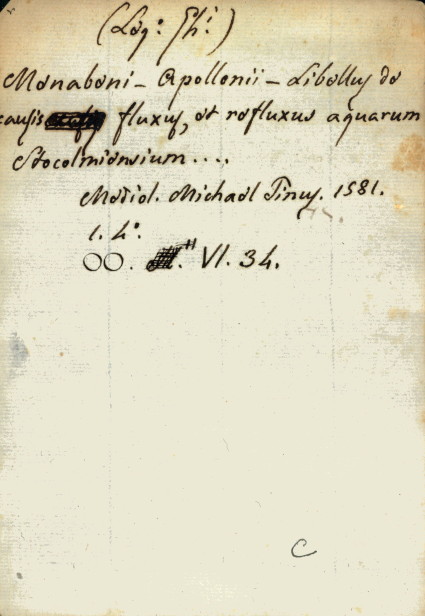 (Log: Ph:)
Monaboni - Apollonii - Libellus de
causis fluxus, et refluxus aquarum
Stocolmiensium....
Mediol. Michael Tinus. 1581.
1. 4°.
OO. " VI. 34.
C